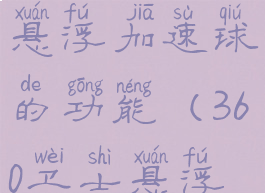 xuán fú jiā sù qiú
悬浮加速球
de gōng néng
的功能（36
wèi shì xuán fú
0卫士悬浮